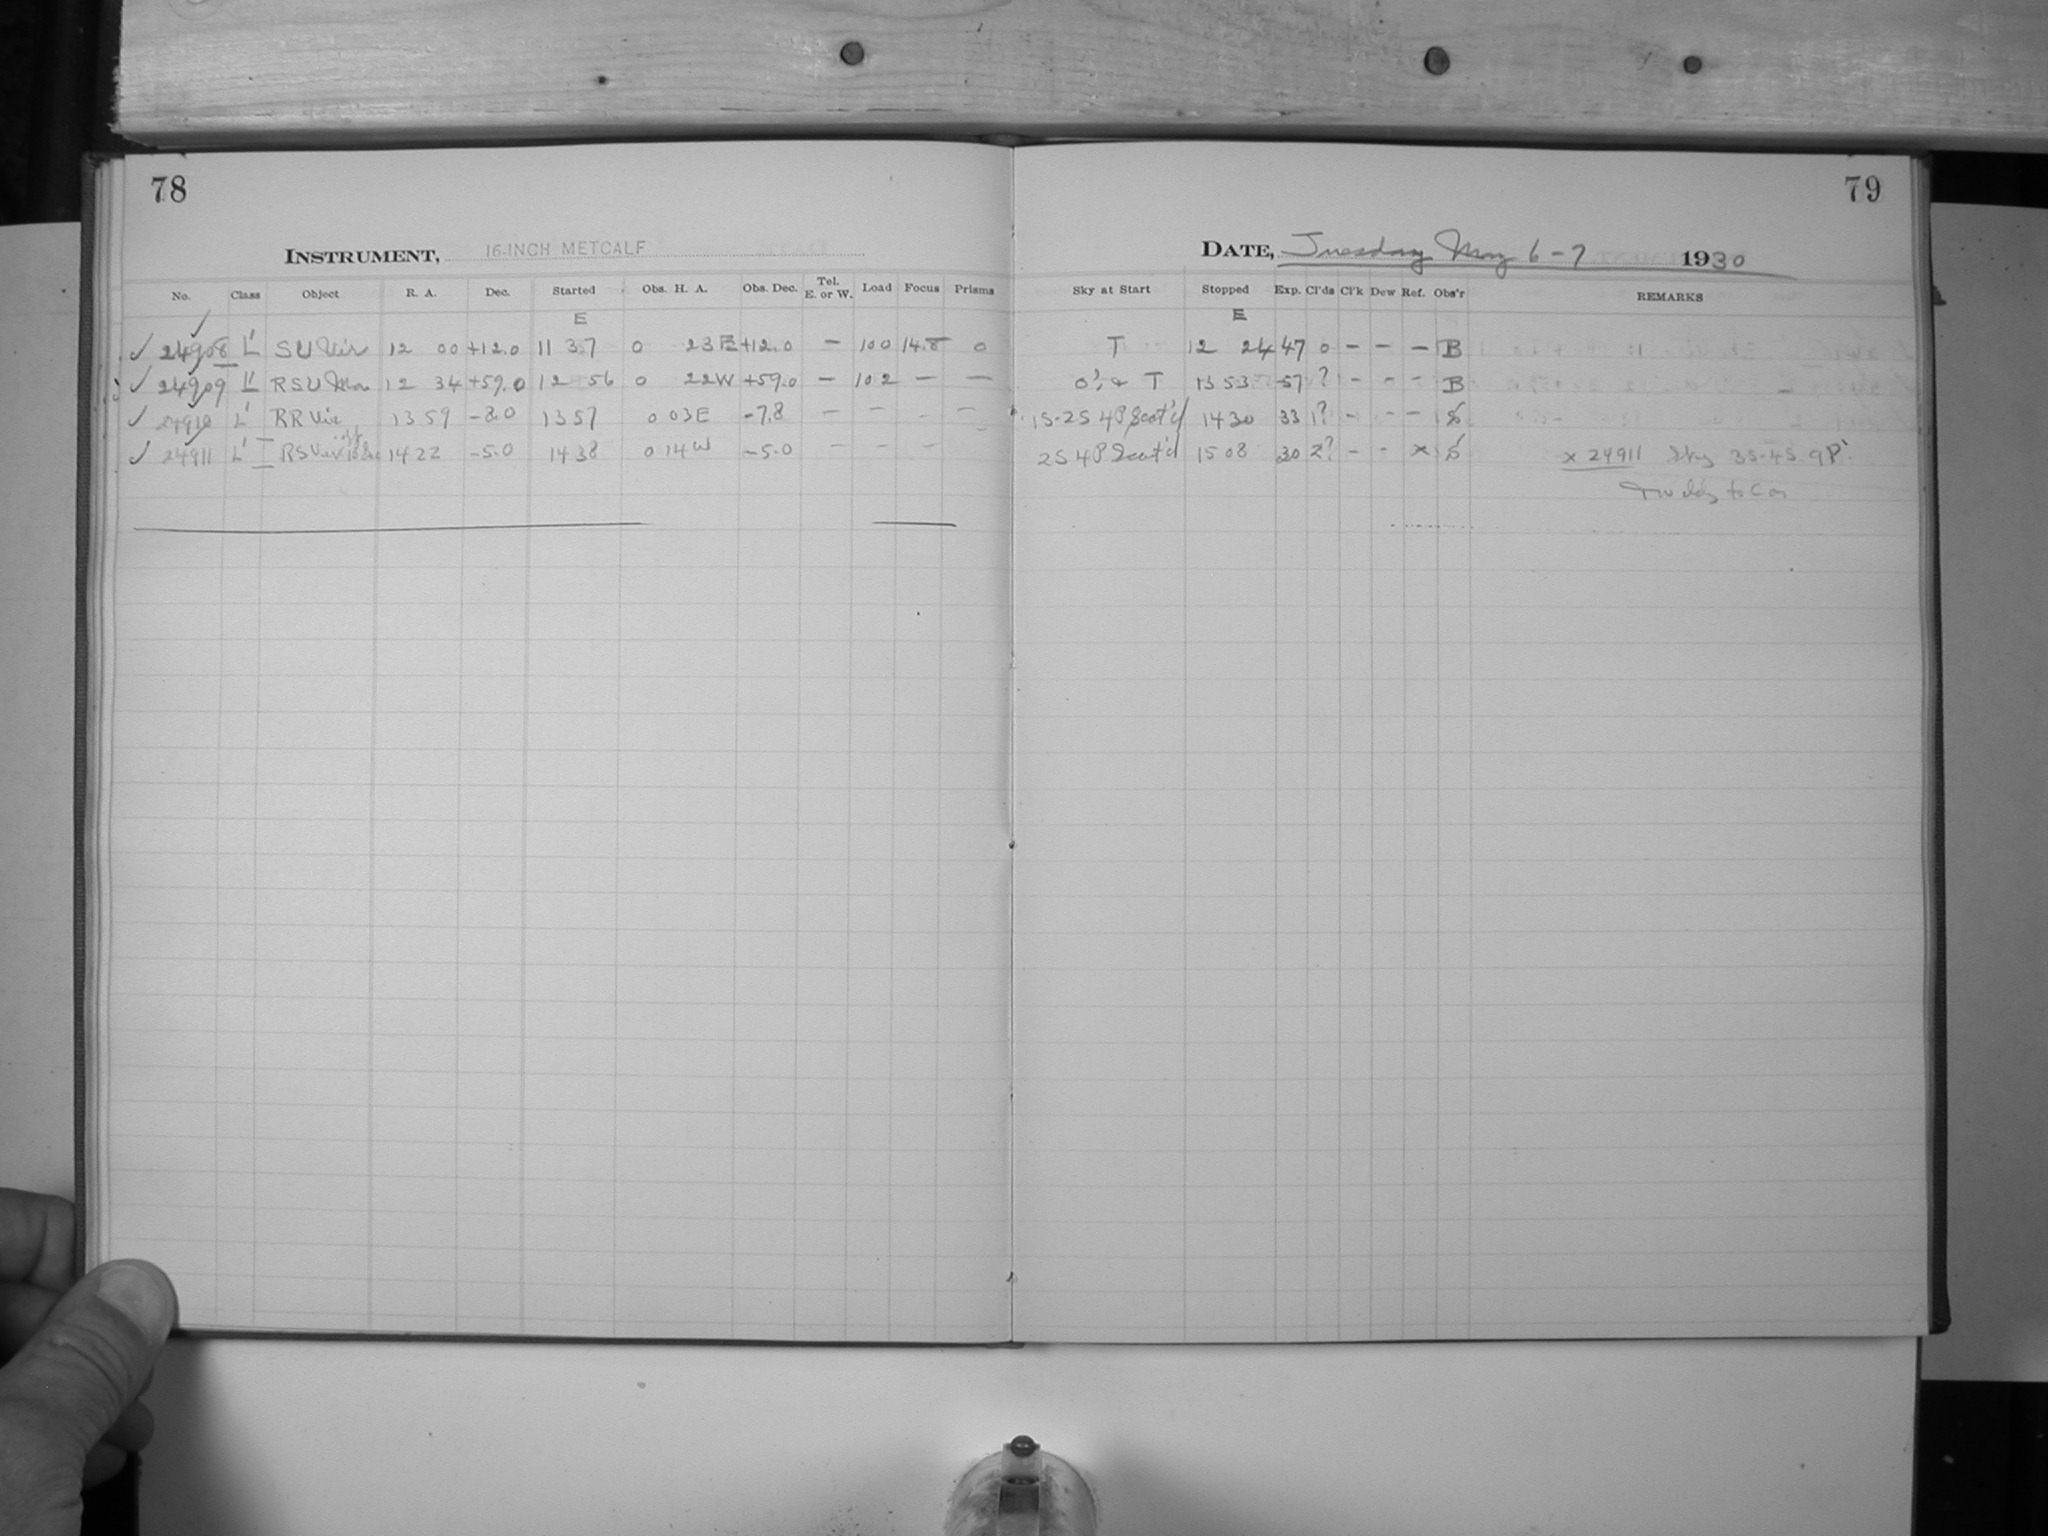 78
INSTRUMENT, 16-INCH METCALF
No. Class Object R. A. Dec. Started Obs. H. A. Obs. Dec. Tel. E. or W. Load Focus Prisms
E
✓ 24908 L' SU Vir 12 00 +12.0 11 37 0 23 E +12.0 — 100 14.8 0
✓ 24909 L' RSUMa 12 34 +59.0 12 56 0 22W +59.0 — 102 — —
✓ 24910 L' RR Vir 13 59 -8.0 13 57 0 03E -7.8 — — — —
✓ 24911 L' RSVir 14 22 -5.0 14 38 0 14W -5.0 — — —
79
DATE, Tuesday May 6-7 1930
Sky at Start Stopped Exp. Cl'ds Cl'k Dew Ref. Obs'r REMARKS
E
T 12 24 47 0 — — — B
T 13 53 57 ? - - - B
1S-2S 4P Scat'd 14 30 33 1? - - - S
2S 4P Scat'd 15 08 30 2? - - x S x 24911 Sky 3S-4S 9P'.